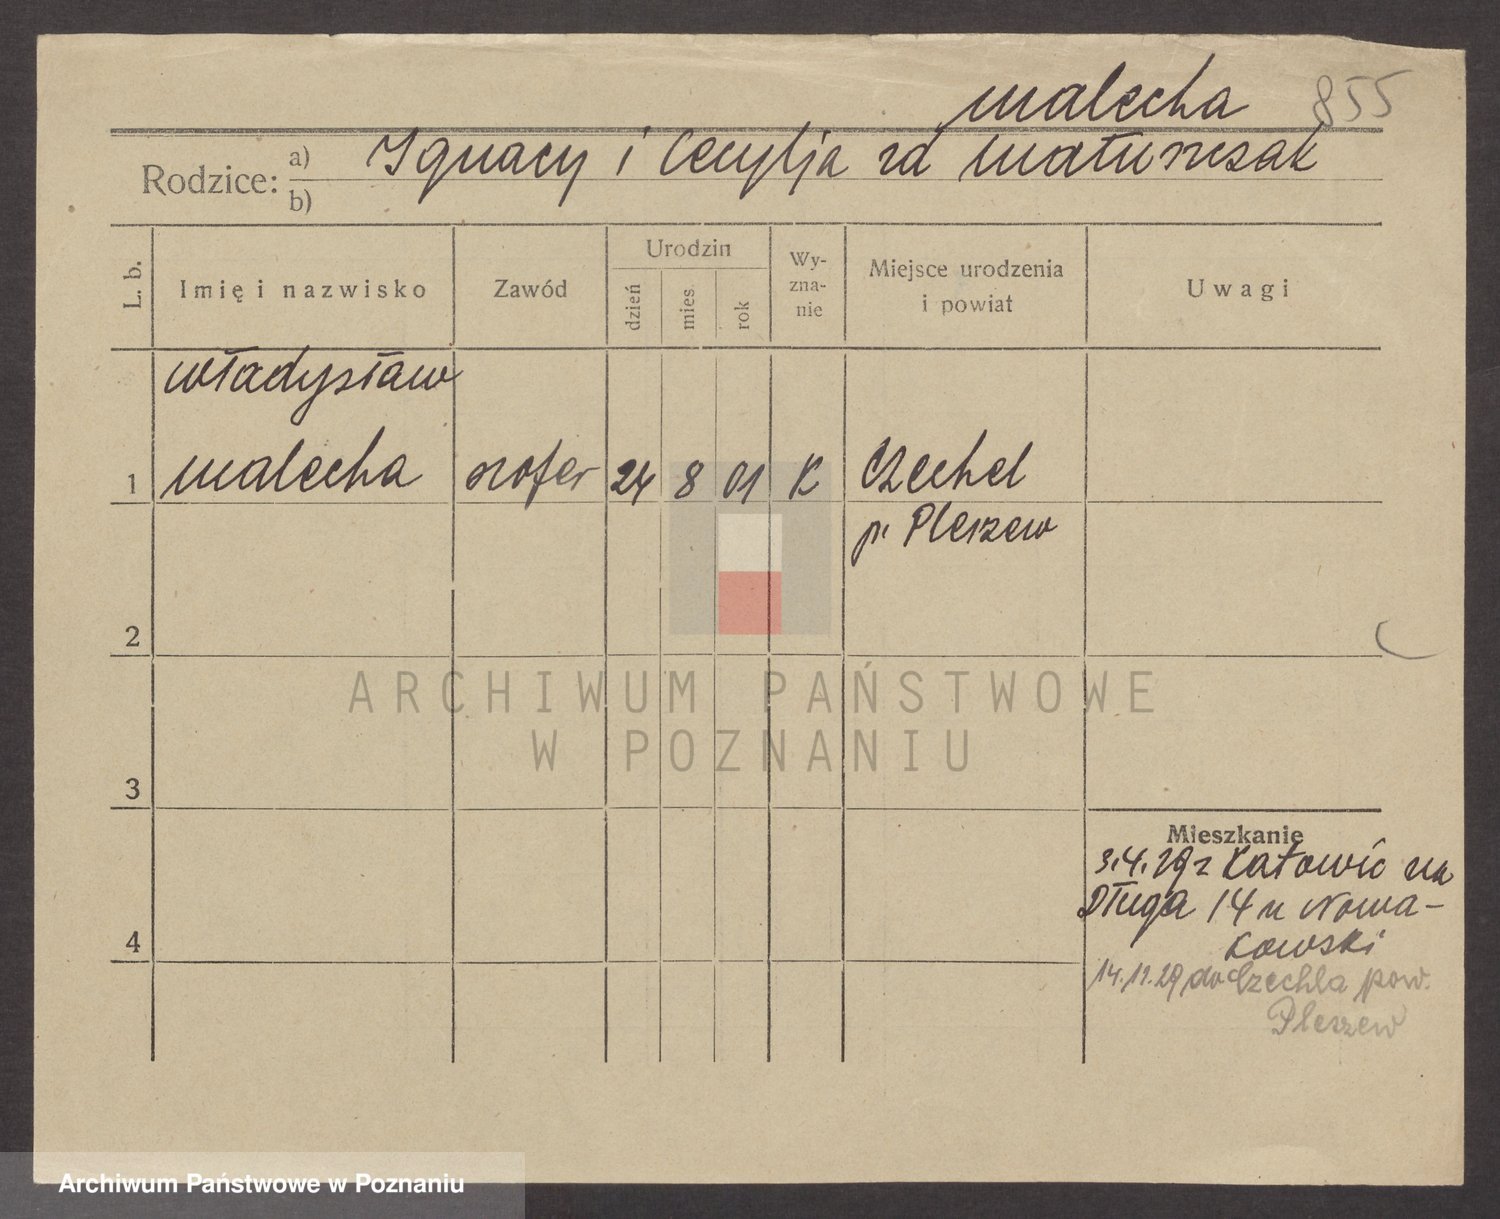 Malecha 855
Rodzice: a) Ignacy i Cecylja zd Matuszczak
b)
L. b.
Imię i nazwisko
Zawód
Urodzin
dzień
mies
rok
Wy-
zna-
nie
Miejsce urodzenia
i powiat
Uwagi
Władysław
1 Malecha szofer 24 8 01 K Czechel
p. Pleszew
2
3
4
Mieszkanie
3.4.29 z Katowic na
Długa 14 u Nowa-
kowski
14.11.29 do Czechla pow.
Pleszew
ARCHIWUM PAŃSTWOWE
W POZNANIU
Archiwum Państwowe w Poznaniu